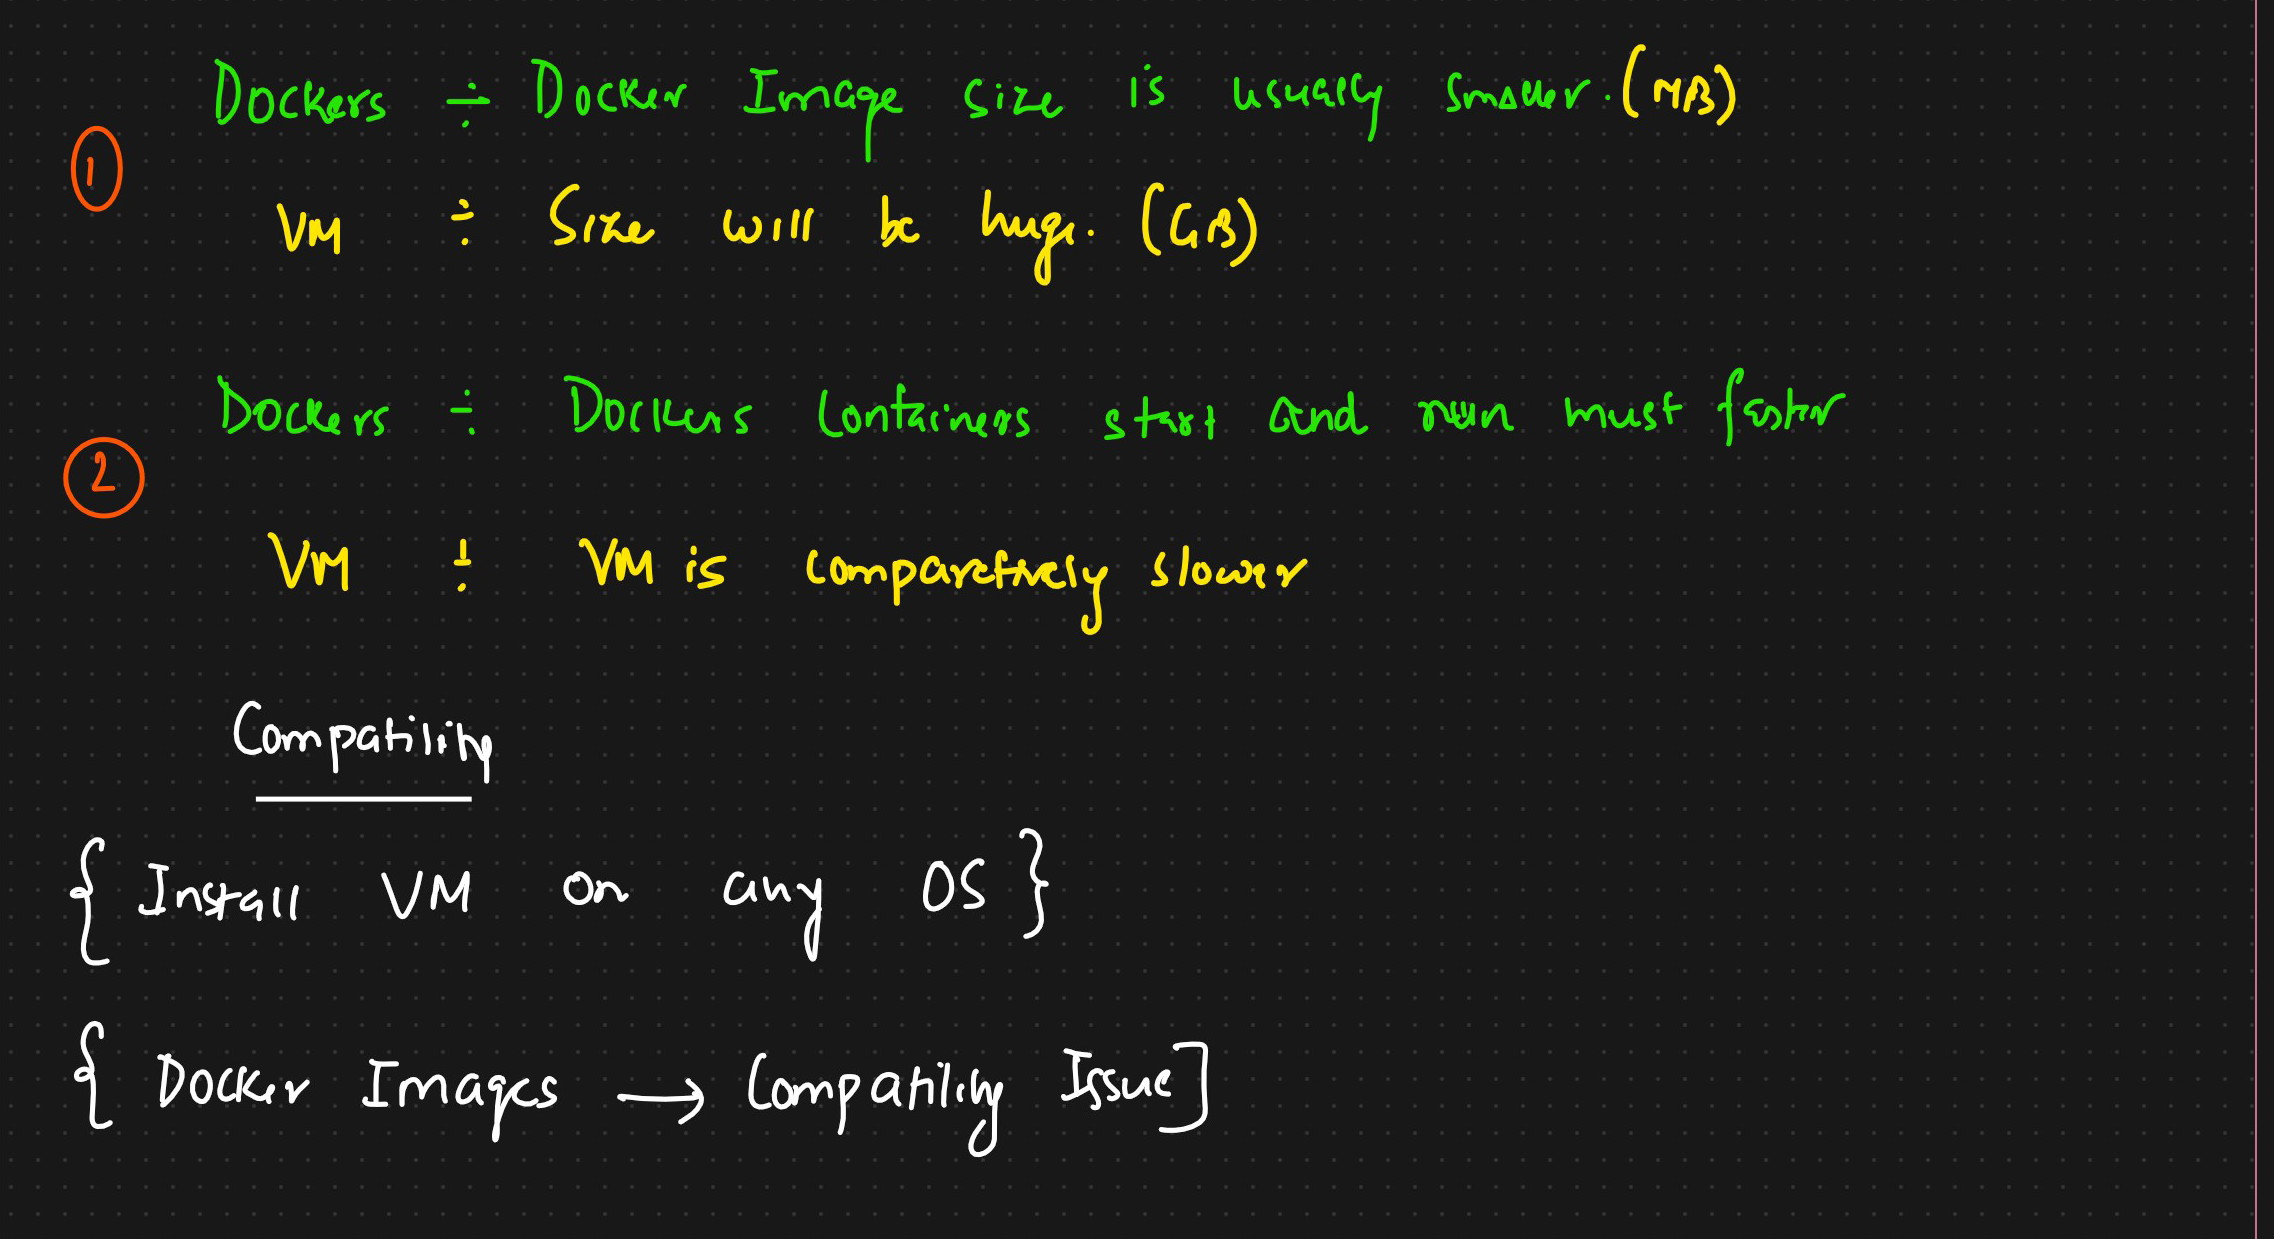 Dockers ÷ Docker Image size is usually smaller. (MB)
①
VM ÷ Size will be huge. (GB)
Dockers ÷ Dockers Containers start and run must faster
②
VM ÷ VM is comparatively slower
Compatility
{ Install VM on any OS }
{ Docker Images → Compatility Issue ]